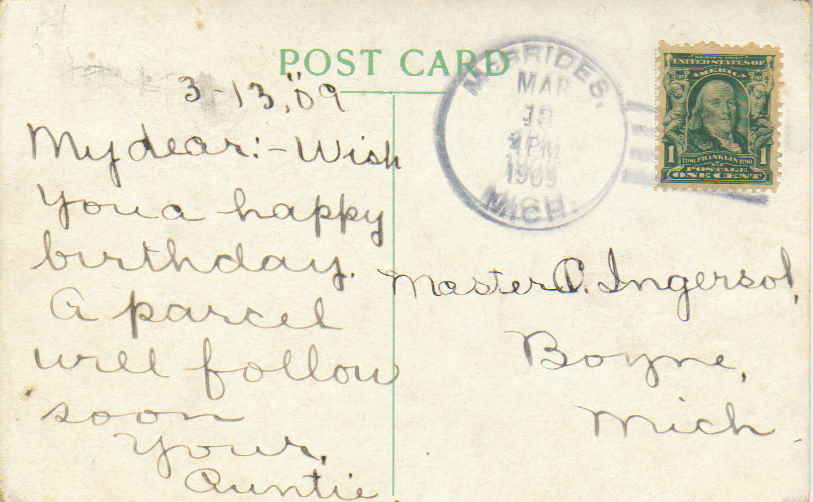 POST CARD
3-13,"09
My dear:- Wish
you a happy
birthday.
A parcel
will follow
soon
Your,
Auntie
McBRIDES,
MAR
PM
1909
MICH.
UNITED STATES OF
AMERICA
FRANKLIN
1 POSTAGE 1
ONE CENT
Master C. Ingersol,
Boyne,
Mich